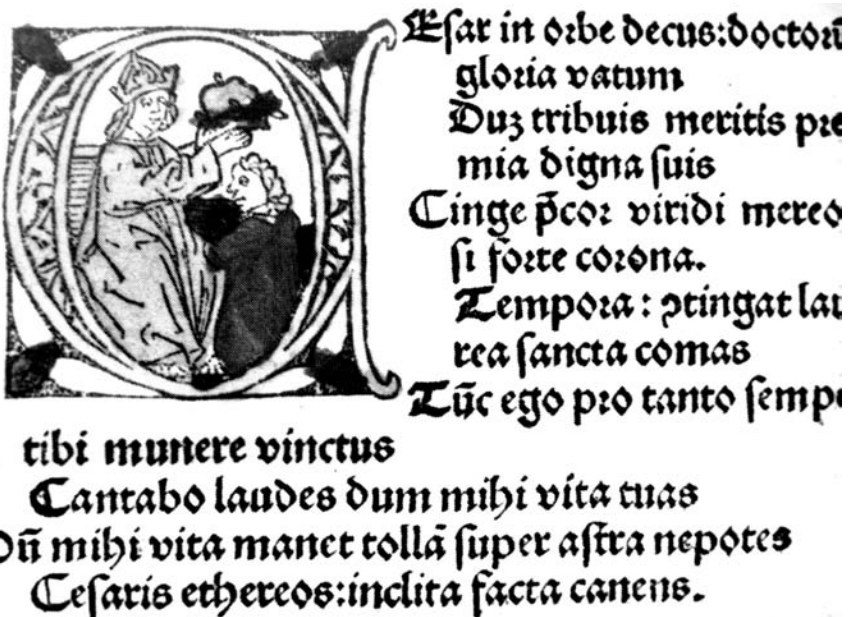 CEſar in orbe decus:doctorū
gloria vatum
Duʒ tribuis meritis pre
mia digna ſuis
Cinge p̄cor viridi mereo
ſi forte corona.
Tempora: ↄtingat lau
rea ſancta comas
Tūc ego pro tanto ſempe
tibi munere vinctus
Cantabo laudes dum mihi vita tuas
Dū mihi vita manet tollā ſuper aſtra nepotes
Ceſaris ethereos:inclita facta canens.